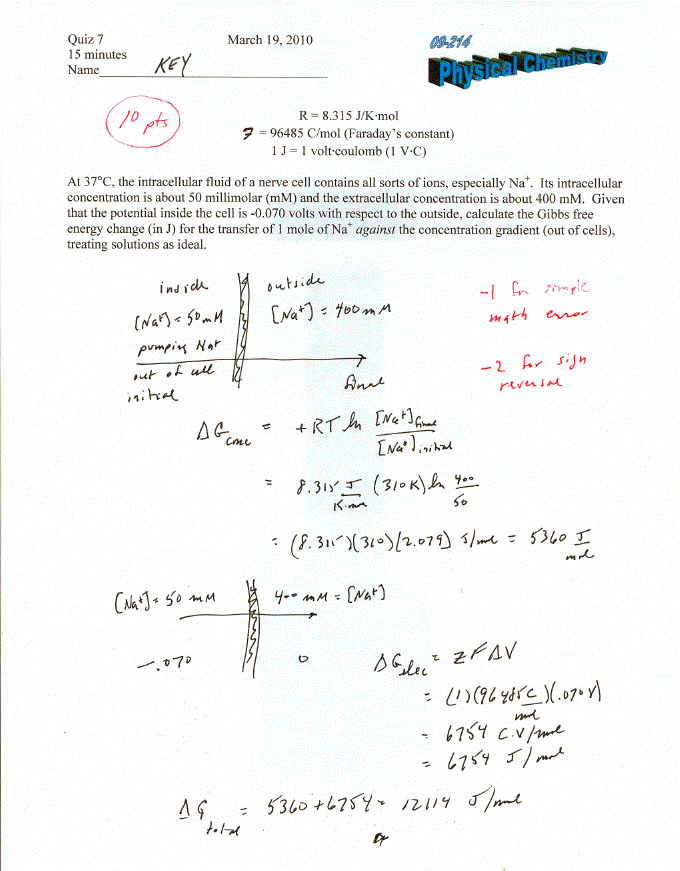 Quiz 7 March 19, 2010 09-214
15 minutes Physical Chemistry
Name KEY
10 pts
R = 8.315 J/K·mol
F = 96485 C/mol (Faraday's constant)
1 J = 1 volt·coulomb (1 V·C)
At 37°C, the intracellular fluid of a nerve cell contains all sorts of ions, especially Na⁺. Its intracellular
concentration is about 50 millimolar (mM) and the extracellular concentration is about 400 mM. Given
that the potential inside the cell is -0.070 volts with respect to the outside, calculate the Gibbs free
energy change (in J) for the transfer of 1 mole of Na⁺ against the concentration gradient (out of cells),
treating solutions as ideal.
inside outside
[Na⁺] = 50 mM [Na⁺] = 400 mM
pumping Na⁺
out of cell final
initial
-1 for simple
math error
-2 for sign
reversal
ΔG conc = +RT ln [Na⁺] final / [Na⁺] initial
= 8.315 J/K·mol (310K) ln 400/50
= (8.315)(310)(2.079) J/mol = 5360 J/mol
[Na⁺] = 50 mM 400 mM = [Na⁺]
-.070 0
ΔG elec = zFΔV
= (1)(96485 C/mol)(.070V)
= 6754 C·V/mol
= 6754 J/mol
ΔG total = 5360 + 6754 = 12114 J/mol